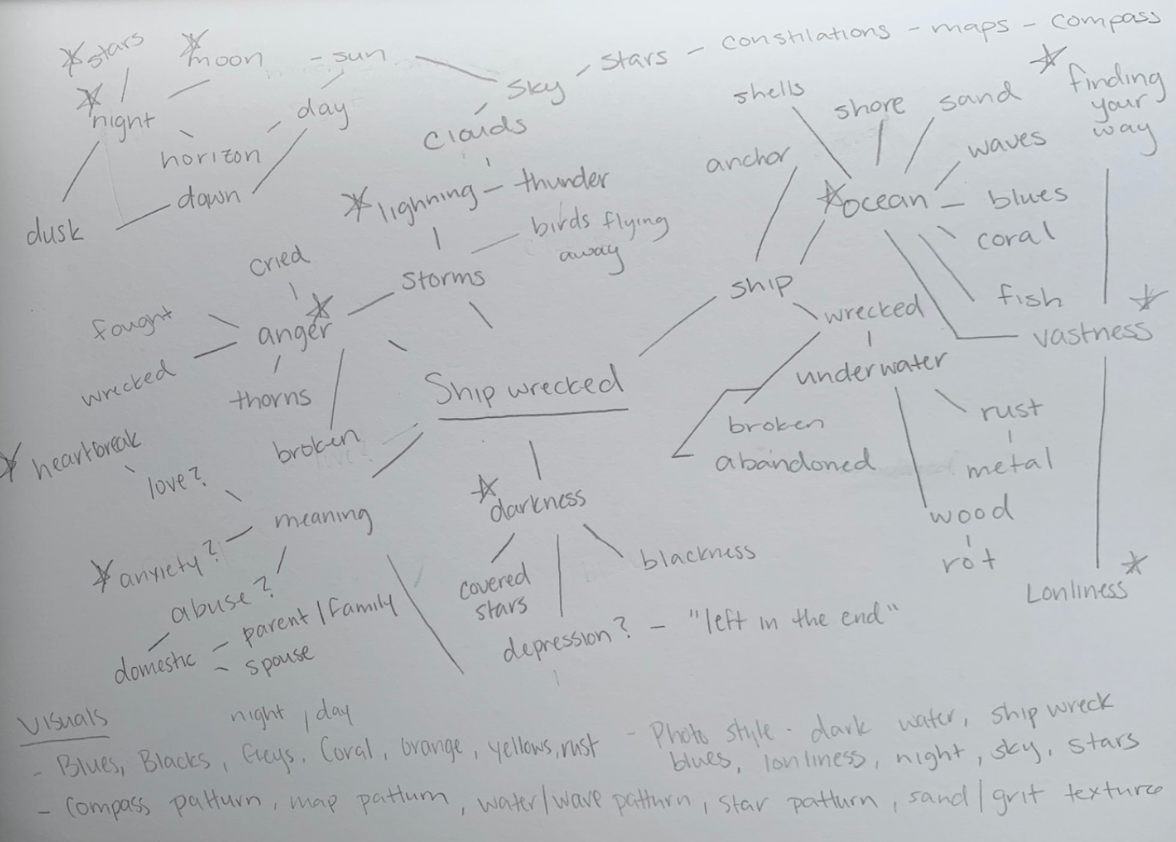 stars
moon - sun
sky - stars - constilations - maps - compass
night
day
horizon
dawn
dusk
clouds
lighning - thunder
birds flying
away
storms
cried
fought
anger
wrecked
thorns
broken
shells
shore
sand
anchor
waves
ocean - blues
coral
fish
finding
your
way
ship
wrecked
vastness
underwater
broken
abandoned
rust
metal
wood
rot
Lonliness
Ship wrecked
heartbreak
love?
meaning
anxiety?
abuse?
domestic - parent/family
- spouse
darkness
covered
stars
blackness
depression? - "left in the end"
Visuals
night, day
- Blues, Blacks, Greys, Coral, orange, yellows, rust
- Photo style - dark water, ship wreck
blues, lonliness, night, sky, stars
- Compass patturn, map patturn, water/wave patturn, star patturn, sand/grit texture